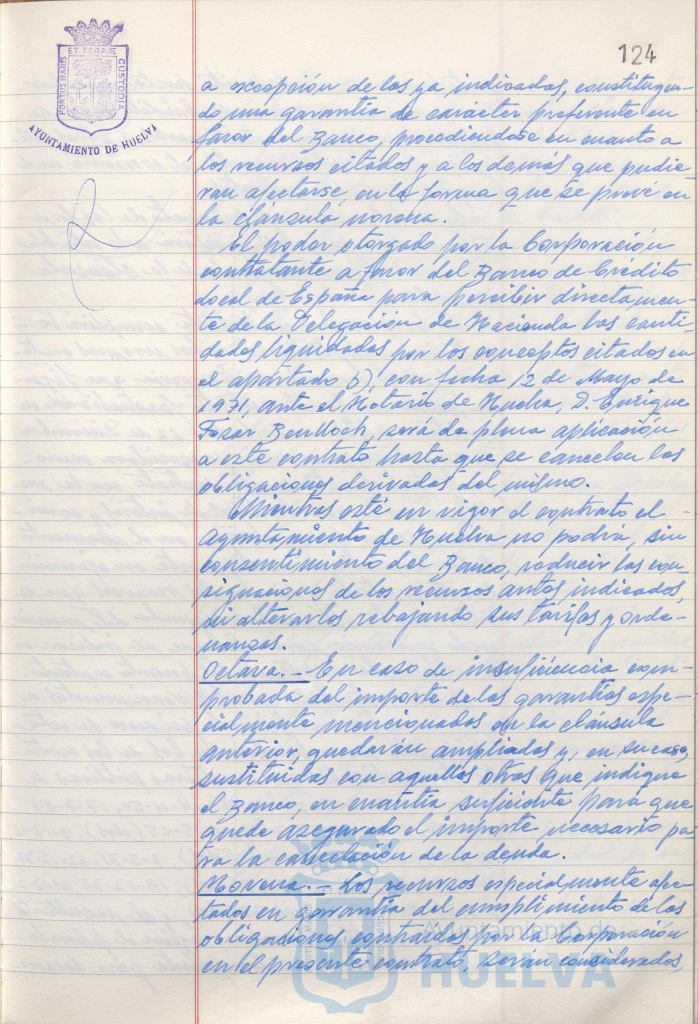 124
PORTUS MARIS
ET TERRAE
CUSTODIA
AYUNTAMIENTO DE HUELVA
a excepción de los ya indicados, constituyen-
do una garantía de carácter preferente en
favor del Banco, procediéndose en cuanto a
los recursos citados y a los demás que pudie-
ran afectarse, en la forma que se prevé en
la cláusula novena.
El poder otorgado por la Corporación
contratante a favor del Banco de Crédito
Local de España para percibir directamen-
te de la Delegación de Hacienda las canti-
dades liquidadas por los conceptos citados en
el apartado b), con fecha 12 de Mayo de
1.971, ante el Notario de Huelva, D. Enrique
será de plena aplicación
a este contrato hasta que se cancelen las
obligaciones derivadas del mismo.
Mientras esté en vigor el contrato el
Ayuntamiento de Huelva no podrá, sin
consentimiento del Banco, reducir las con-
signaciones de los recursos antes indicados,
ni alterarlos rebajando sus tarifas y orde-
nanzas.
Octava.- En caso de insuficiencia com-
probada del importe de las garantías espe-
cialmente mencionadas en la cláusula
anterior, quedarán ampliadas y, en su caso,
sustituidas con aquellas otras que indique
el Banco, en cuantía suficiente para que
quede asegurado el importe necesario pa-
ra la cancelación de la deuda.
Novena.- Los recursos especialmente afec-
tados en garantía del cumplimiento de las
obligaciones contraídas por la Corporación
en el presente contrato, serán considerados,
Ayuntamiento de
HUELVA